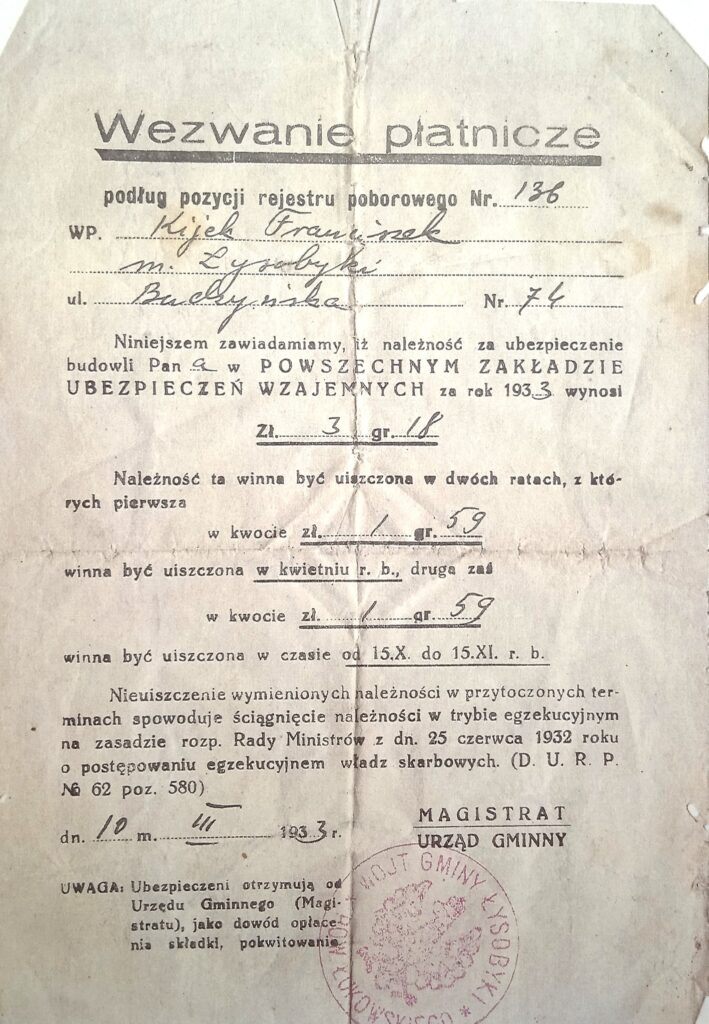 Wezwanie płatnicze
podług pozycji rejestru poborowego Nr. 136
WP. Kijek Franciszek
m. Łysobyki
ul. Budzyńska Nr. 74
Niniejszem zawiadamiamy, iż należność za ubezpieczenie
budowli Pana w POWSZECHNYM ZAKŁADZIE
UBEZPIECZEŃ WZAJEMNYCH za rok 1933 wynosi
Zł. 3 gr. 18
Należność ta winna być uiszczona w dwóch ratach, z któ-
rych pierwsza
w kwocie zł. 1 gr. 59
winna być uiszczona w kwietniu r. b., druga zaś
w kwocie zł. 1 gr. 59
winna być uiszczona w czasie od 15.X. do 15.XI. r. b.
Nieuiszczenie wymienionych należności w przytoczonych ter-
minach spowoduje ściągnięcie należności w trybie egzekucyjnym
na zasadzie rozp. Rady Ministrów z dn. 25 czerwca 1932 roku
o postępowaniu egzekucyjnem władz skarbowych. (D. U. R. P.
№ 62 poz. 580)
dn. 10 m. III 1933 r.
MAGISTRAT
URZĄD GMINNY
UWAGA: Ubezpieczeni otrzymują od
Urzędu Gminnego (Magi-
stratu), jako dowód opłace-
nia składki, pokwitowanie
WÓJT GMINY ŁYSOBYKI *